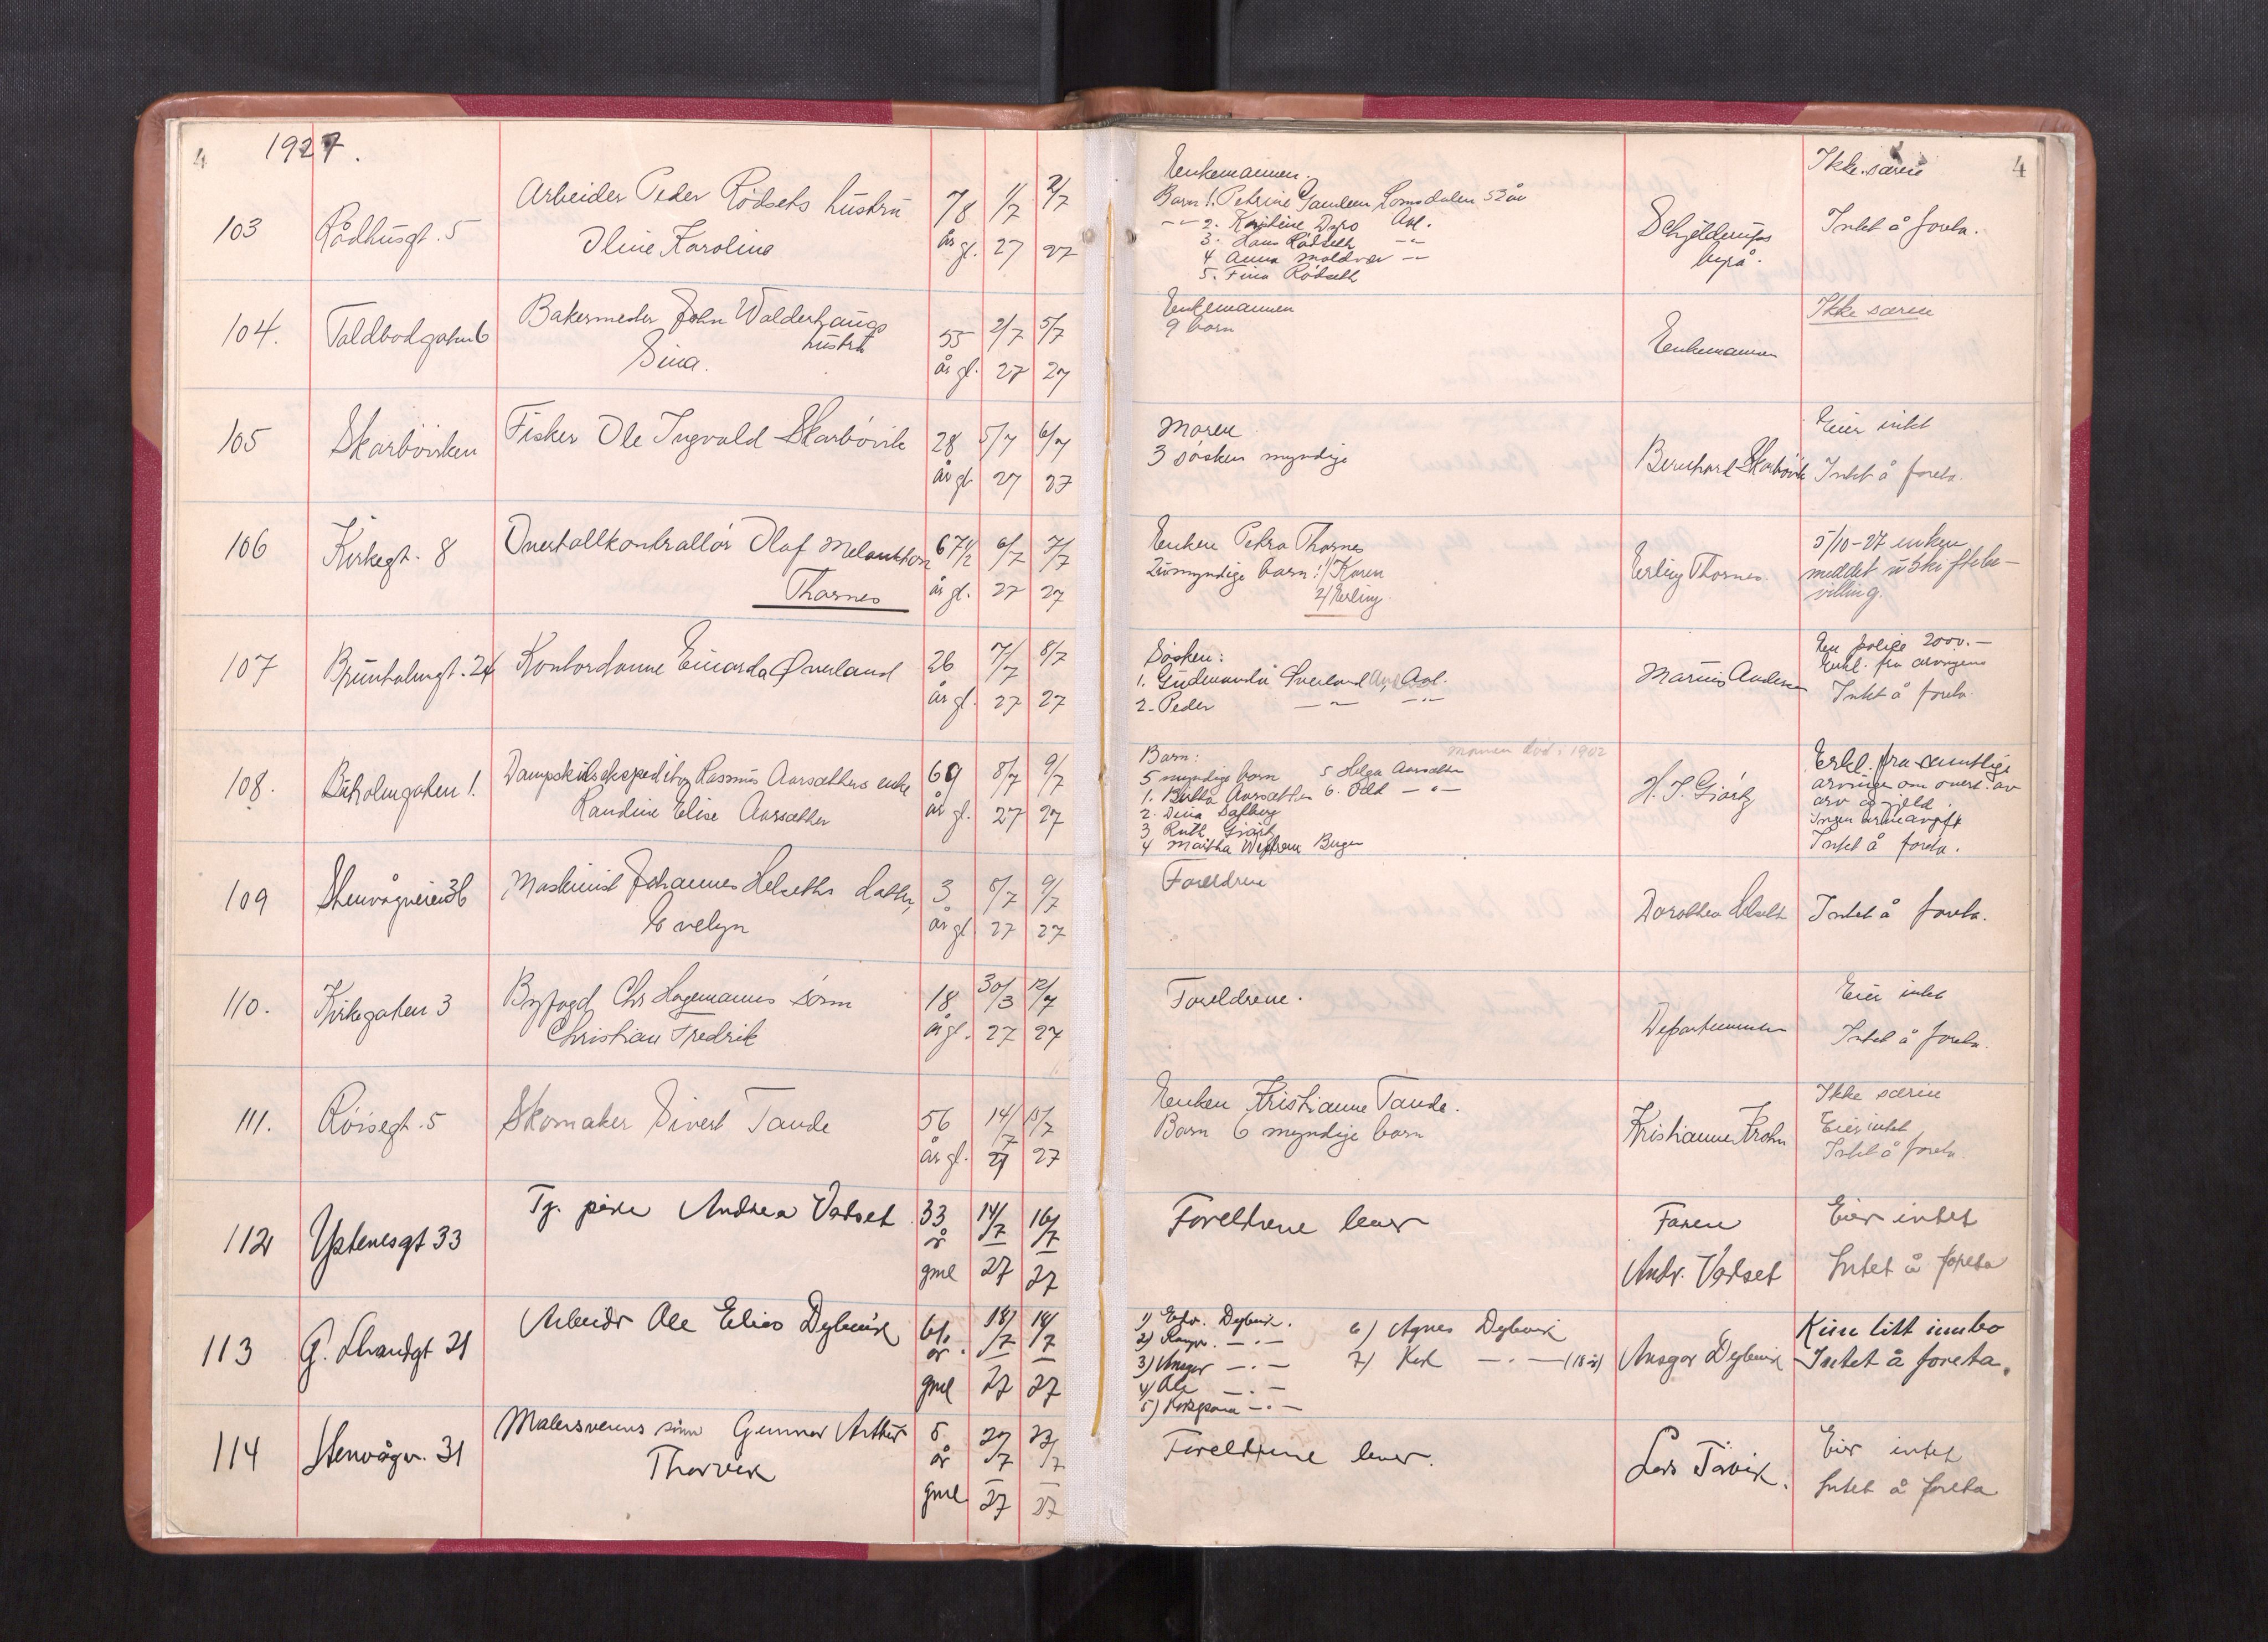 4
1927.
103
Rådhusgt. 5
Arbeider Peder Rödsets hustru
Oline Karoline
78 år gl.
1/7 27
2/7 27
Enkemannen.
Barn 1. Petrine Romsdalen 53 år
2. Aal.
3. Hans Rödseth -"-
4 Anna Moldvær -"-
5. Fina Rödseth
Schjelderups
byrå.
Ikke særeie
Intet å foreta.
4
104.
Toldbodgaten 6
Bakermester John Walderhaugs
hustru
Sina.
55 år gl.
2/7 27
5/7 27
Enkemannen
9 barn
Enkemannen
Ikke særeie
105
Skarböviken
Fisker Ole Ingvald Skarbövik
28 år gl.
5/7 27
6/7 27
Moren
3 sösken myndige
Bernhard Skarbövik
Eier intet
Intet å foreta.
106
Kirkegt. 8
Overtollkontrollör Olaf Melankton
Thornes
67 1/2 år gl.
6/7 27
7/7 27
Enken Petra Thornes
2 umyndige barn: 1/ Karen
2/ Erling
Erling Thornes.
5/10-27 enken
meddelt uskiftebe-
villing.
107
Brunholmgt. 24
Kontordame Einarda Øverland
26 år gl.
7/7 27
8/7 27
Søsken:
1. Øverland Aal.
2. Peder -"- -"-
Marius Andersen
En polise 2000.-
Erkl. fra arvingene
Intet å foreta.
108.
Buholmgaten 1.
Dampskibsekspeditør Rasmus Aarsæthers enke
Randine Elise Aarsæther
69 år gl.
8/7 27
9/7 27
Barn: mannen död i 1902
5 myndige barn 5 Helga Aarsæther
1. Aarsæther 6. Odd -"-
2. Dina Dalberg
3 Ruth Giørtz
4 Bergen
H. J. Giörtz
Erkl. fra samtlige
arvinger om overt. av
arv og gjeld.
Ingen arveavgift
Intet å foreta.
109
Stenvågveien 36
Maskinist Johannes Helseths datter,
Evelyn
3 år gl
8/7 27
9/7 27
Foreldrene
Dorothea Helseth
Intet å foreta.
110.
Kirkegaten 3
Byfogd Chr Hagemanns sönn
Christian Fredrik
18 år gl.
30/3 27
12/7 27
Foreldrene.
Departementet
Eier intet
Intet å foreta.
111.
Röisegt. 5
Skomaker Sivert Tande
56 år gl.
14/7 27
15/7 27
Enken Kristianne Tande.
Barn 6 myndige barn
Kristianne Krohn
Ikke særeie
Eier intet
Intet å foreta.
112
Ystenesgt 33
Tj. pike Andrea Vatset
33 år gml
14/7 27
16/7 27
Foreldrene lever
Faren
Andr. Vatset
Eier intet
Intet å foreta
113
G. Strandgt 21
Arbeider Ole Elias Dybvik
61. år. gml
18/7 27
18/7 27
1) Dybvik. 6) Agnes Dybvik
2) -"- 7) -"- (18 år)
3) Ansgar -"-
4) Ole -"-
5) -"-
Ansgar Dybvik
Kun litt innbo
Intet å foreta.
114
Stenvågv. 31
Malersvenns sönn Gunnar Arthur
Thorvik
5 år gml
22/7 27
23/7 27
Foreldrene lever.
Lars Torvik.
Eier intet
Intet å foreta